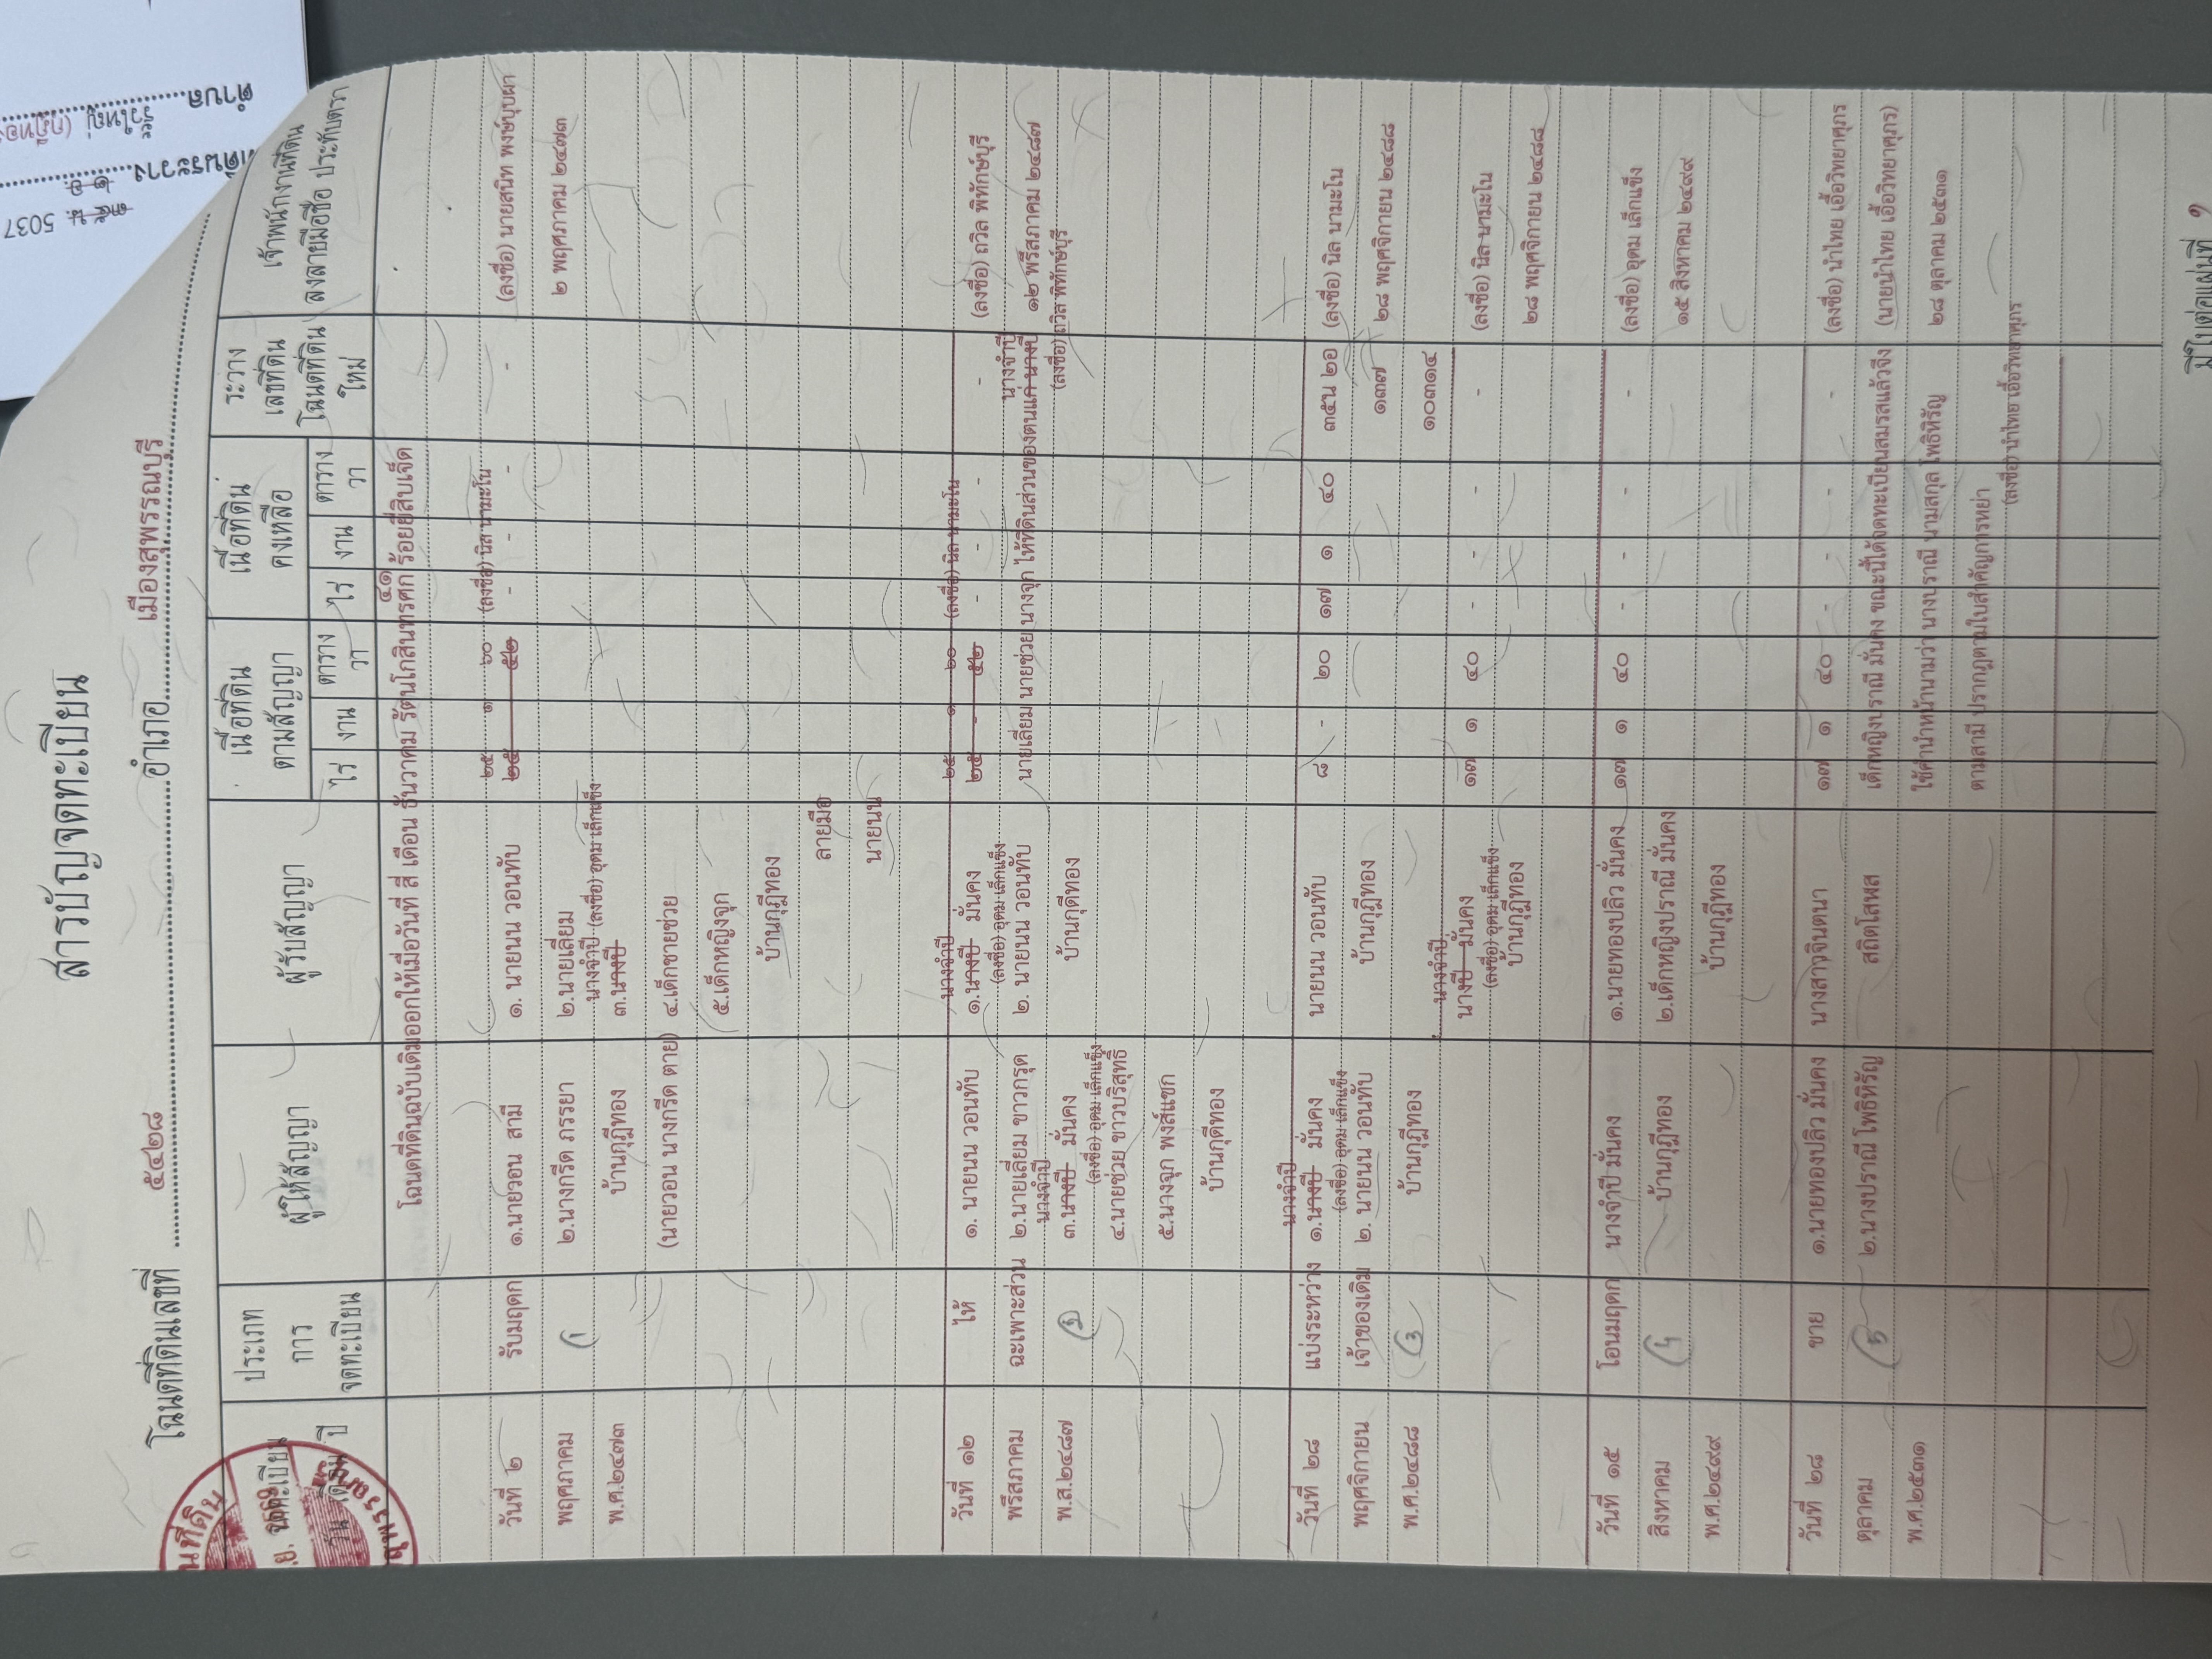 สารบัญจดทะเบียน
โฉนดที่ดินเลขที่ ๕๔๒๘ อำเภอ เมืองสุพรรณบุรี
จดทะเบียน
วัน เดือน ปี
ประเภท
การ
จดทะเบียน
ผู้ให้สัญญา
ผู้รับสัญญา
เนื้อที่ดิน
ตามสัญญา
ไร่ งาน ตาราง
วา
เนื้อที่ดิน
คงเหลือ
ไร่ งาน ตาราง
วา
ระวาง
เลขที่ดิน
โฉนดที่ดิน
ใหม่
เจ้าพนักงานที่ดิน
ลงลายมือชื่อ ประทับตรา
๔๑
โฉนดที่ดินฉบับเดิมออกให้เมื่อวันที่ สี่ เดือน ธันวาคม รัตนโกสินทรศก ร้อยยี่สิบเจ็ด
๒๕ ๑ ๖๐ (ลงชื่อ) นิล นามะโน
วันที่ ๒ รับมฤดก ๑.นายวอน สามี ๑. นายนน วอนทับ ๒๕ ๕๒ - - - - (ลงชื่อ) นายสนิท พงษ์บุบผา
พฤศภาคม ๒.นางกรีด ภรรยา ๒.นายเลี่ยม ๒ พฤศภาคม ๒๔๗๓
นางจำปี (ลงชื่อ) อุดม เล็กแข็ง
พ.ศ.๒๔๗๓ บ้านกุฎีทอง ๓.นางปี
(นายวอน นางกรีด ตาย) ๔.เด็กชายช่วย
๕.เด็กหญิงจุก
บ้านกุฎีทอง
ลายมือ
นายนน
นางจำปี ๒๕ ๑ ๒๐ (ลงชื่อ) นิล นามะโน
วันที่ ๑๒ ไห้ ๑. นายนน วอนทับ ๑.นางปี มั่นคง ๒๕ - ๕๒ - - - - (ลงชื่อ) ถวิล พิทักษ์บุรี
(ลงชื่อ) อุดม เล็กแข็ง นางจำปี
พรึสภาคม ฉะเพาะส่วน ๒.นายเลี่ยม ขาวกรุด ๒. นายนน วอนทับ นายเลี่ยม นายช่วย นางจุก ไห้ที่ดินส่วนของตนแก่ นางปี ๑๒ พรึสภาคม ๒๔๘๗
นางจำปี (ลงชื่อ) ถวิล พิทักษ์บุรี
พ.ส.๒๔๘๗ ๓.นางปี มั่นคง บ้านกุดีทอง
(ลงชื่อ) อุดม เล็กแข็ง
๔.นายช่วย ขาวบริสุทธิ์
๕.นางจุก พงส์แขก
บ้านกุดีทอง
นางจำปี
วันที่ ๒๘ แบ่งระหว่าง ๑.นางปี มั่นคง นายนน วอนทับ ๘ - ๒๐ ๑๗ ๑ ๔๐ ๓๕น ๒๐ (ลงชื่อ) นิล นามะโน
(ลงชื่อ) อุดม เล็กแข็ง
พฤศจิกายน เจ้าของเดิม ๒. นายนน วอนทับ บ้านกุฎีทอง ๑๓๗ ๒๘ พฤศจิกายน ๒๔๘๘
พ.ศ.๒๔๘๘ บ้านกุฎีทอง ๑๐๓๑๔
นางจำปี
นางปี มั่นคง ๑๗ ๑ ๔๐ - - - - (ลงชื่อ) นิล นามะโน
(ลงชื่อ) อุดม เล็กแข็ง
บ้านกุฎีทอง ๒๘ พฤศจิกายน ๒๔๘๘
วันที่ ๑๕ โอนมฤดก นางจำปี มั่นคง ๑.นายทองปลิว มั่นคง ๑๗ ๑ ๔๐ - - - - (ลงชื่อ) อุดม เล็กแข็ง
สิงหาคม บ้านกุฎีทอง ๒.เด็กหญิงปราณี มั่นคง ๑๕ สิงหาคม ๒๔๙๙
พ.ศ.๒๔๙๙ บ้านกุฎีทอง
วันที่ ๒๘ ขาย ๑.นายทองปลิว มั่นคง นางสาวจินตนา ๑๗ ๑ ๔๐ - - - - (ลงชื่อ) นำไทย เอื้อวิทยาศุภร
ตุลาคม ๒.นางปราณี โพธิหิรัญ สถิตโสพส เด็กหญิงปราณี มั่นคง ขณะนี้ได้จดทะเบียนสมรสแล้วจึง (นายนำไทย เอื้อวิทยาศุภร)
พ.ศ.๒๕๓๑ ใช้คำนำหน้านามว่า นางปราณี นามสกุล โพธิหิรัญ ๒๘ ตุลาคม ๒๕๓๑
ตามสามี ปรากฏตามใบสำคัญการหย่า
(ลงชื่อ) นำไทย เอื้อวิทยาศุภร
มีใบต่อแผ่นที่ ๑
5037
ตำบล
รั้วใหญ่